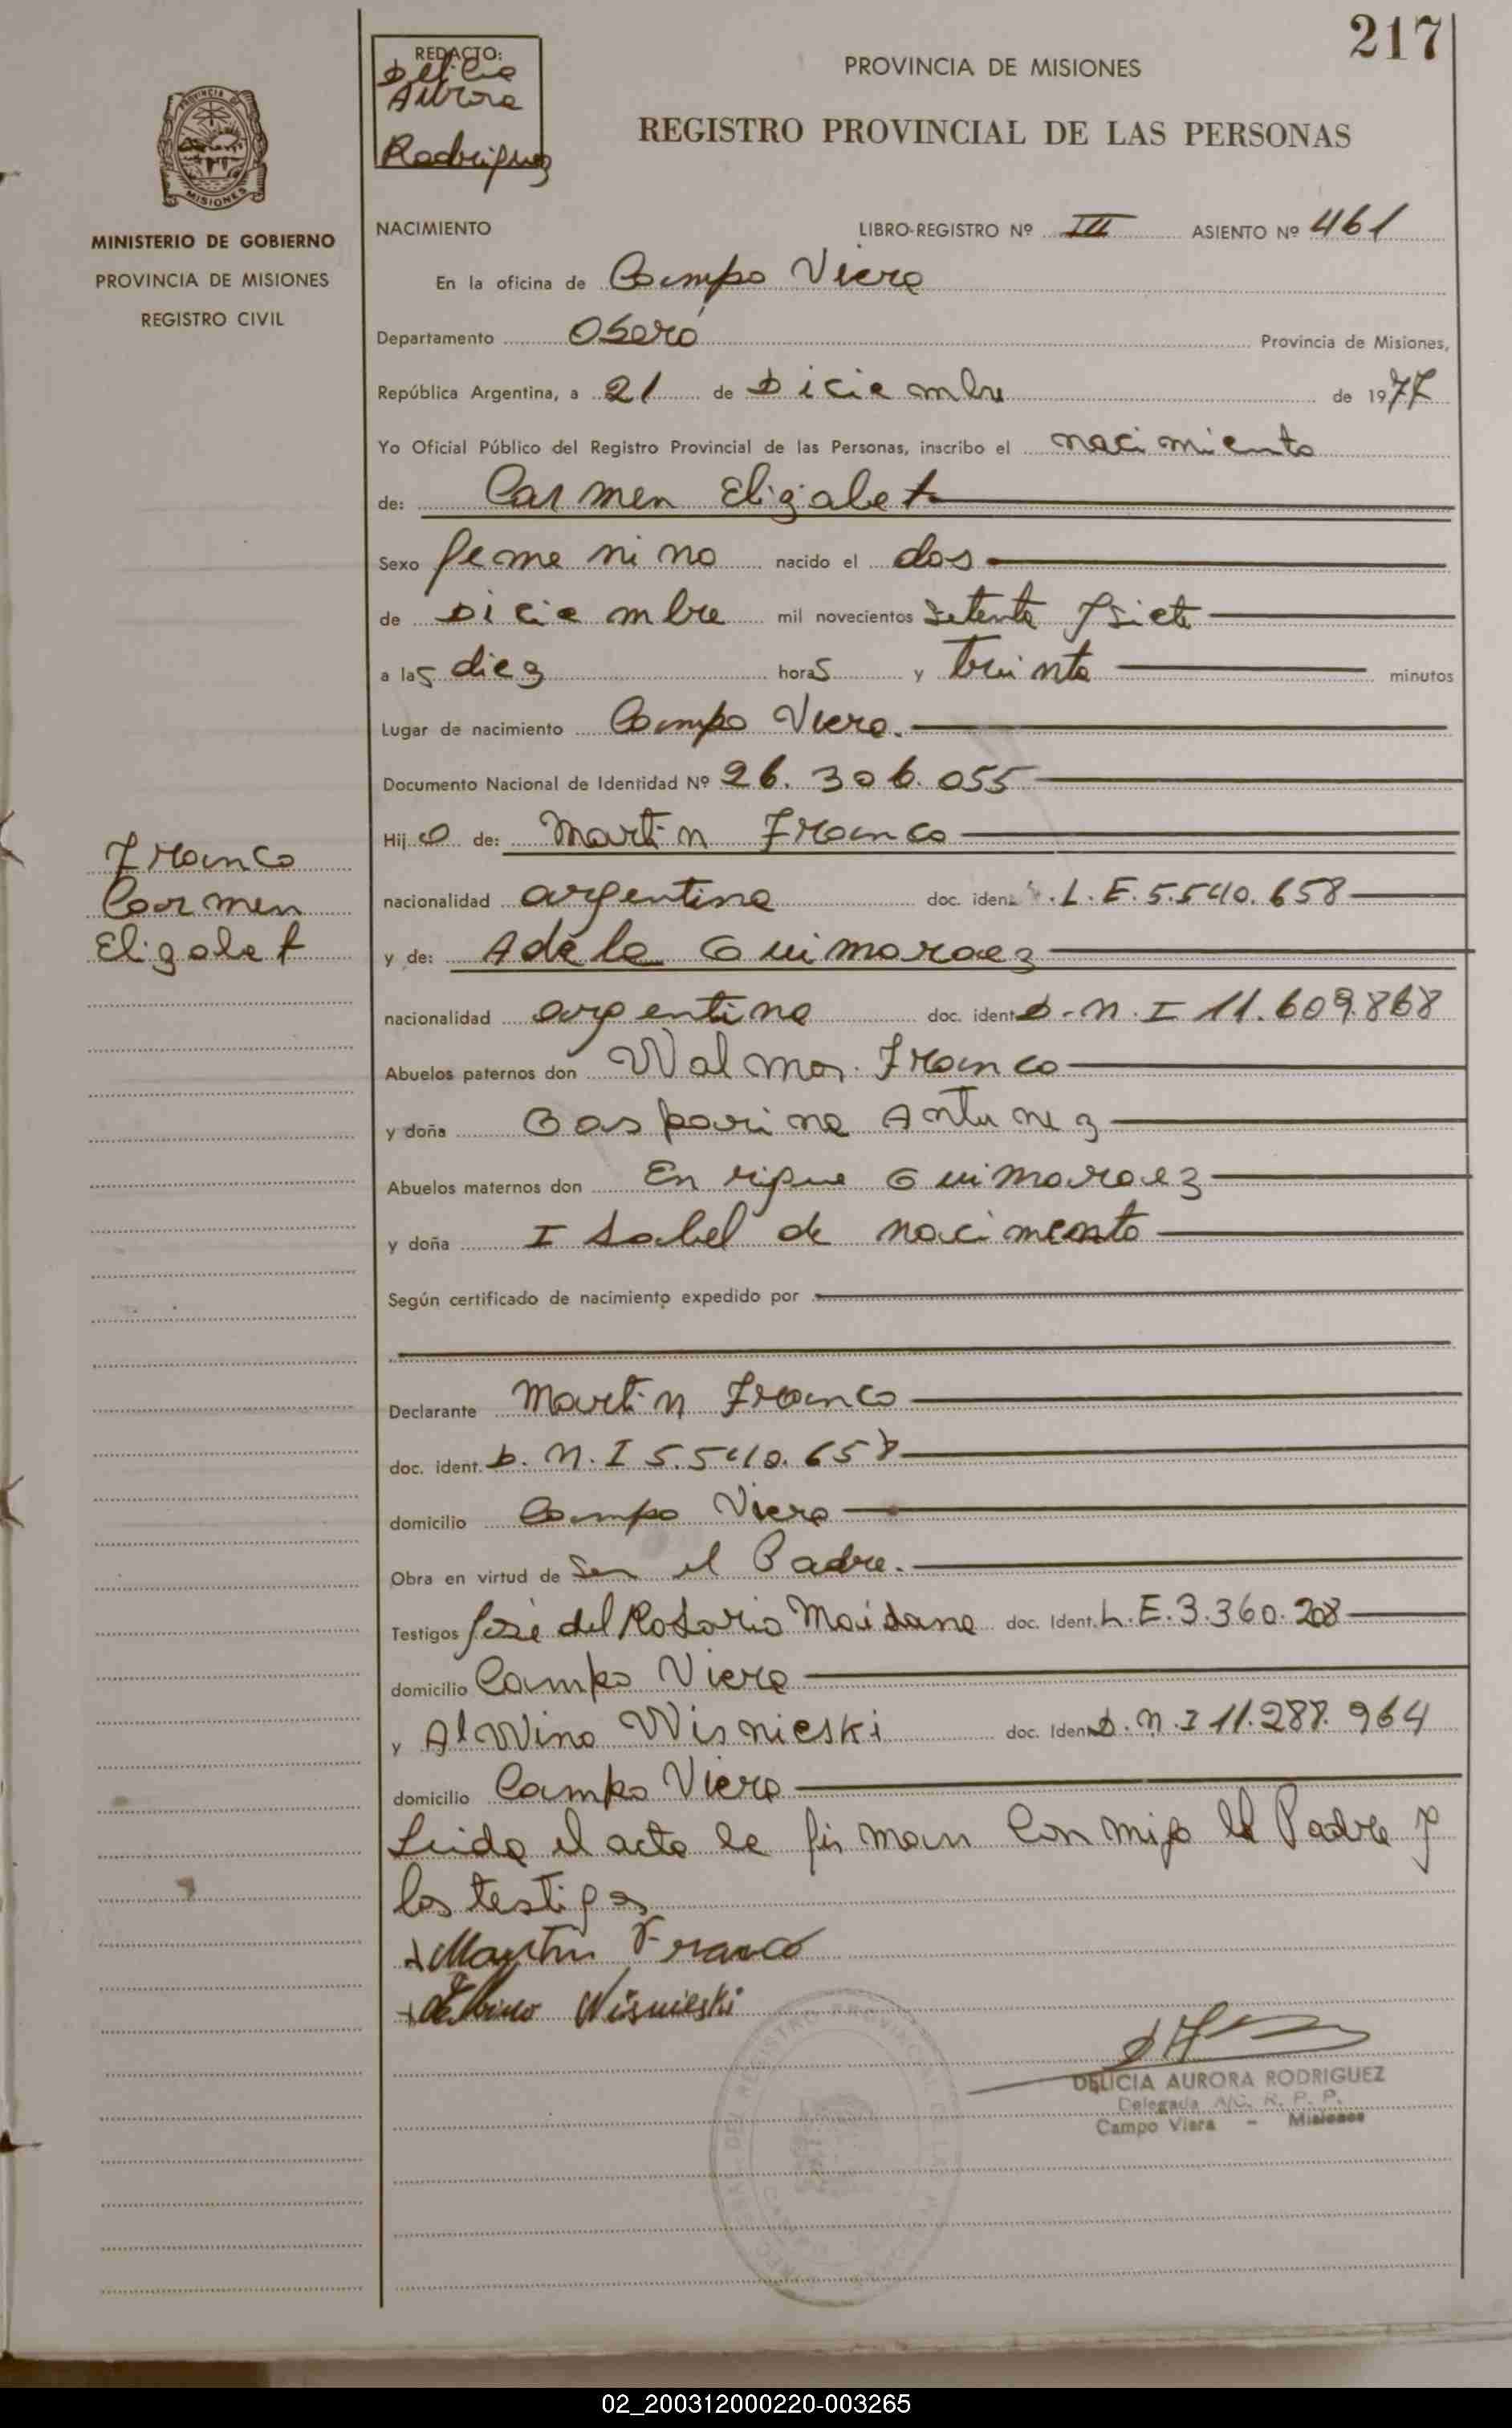 217
REDACTO:
Delicia
Aurora
Rodriguez
PROVINCIA DE MISIONES
REGISTRO PROVINCIAL DE LAS PERSONAS
PROVINCIA DE
MISIONES
MINISTERIO DE GOBIERNO
PROVINCIA DE MISIONES
REGISTRO CIVIL
NACIMIENTO LIBRO-REGISTRO Nº III ASIENTO Nº 461
En la oficina de Campo Viera
Departamento Oberá Provincia de Misiones,
República Argentina, a 21 de Diciembre de 1977
Yo Oficial Público del Registro Provincial de las Personas, inscribo el nacimiento
de: Carmen Elizabet
Sexo femenino nacido el dos
de Diciembre mil novecientos setenta y siete
a las diez horas y treinta minutos
Lugar de nacimiento Campo Viera.
Documento Nacional de Identidad Nº 26.306.055
Franco
Carmen
Elizabet
Hija de: Martin Franco
nacionalidad argentina doc. ident. L.E. 5.540.658
y de: Adela Guimaraez
nacionalidad argentina doc. ident. D.N.I 11.609.868
Abuelos paternos don Walmor Franco
y doña Gasparina Antunez
Abuelos maternos don Enrique Guimaraez
y doña Isabel de nacimento
Según certificado de nacimiento expedido por
Declarante Martin Franco
doc. ident. D.N.I 5.540.658
domicilio Campo Viera
Obra en virtud de Ser el Padre.
Testigos José del Rosario Maidana doc. Ident. L.E. 3.360.208
domicilio Campo Viera
y Alwino Wisnieski doc. Ident. D.N.I 11.287.964
domicilio Campo Viera
Leida el acta la firman conmigo el Padre y
los testigos
Martin Franco
Albino Wisnieski
DELICIA AURORA RODRIGUEZ
Delegada A/C. R. P. P.
Campo Viera - Misiones
02_200312000220-003265